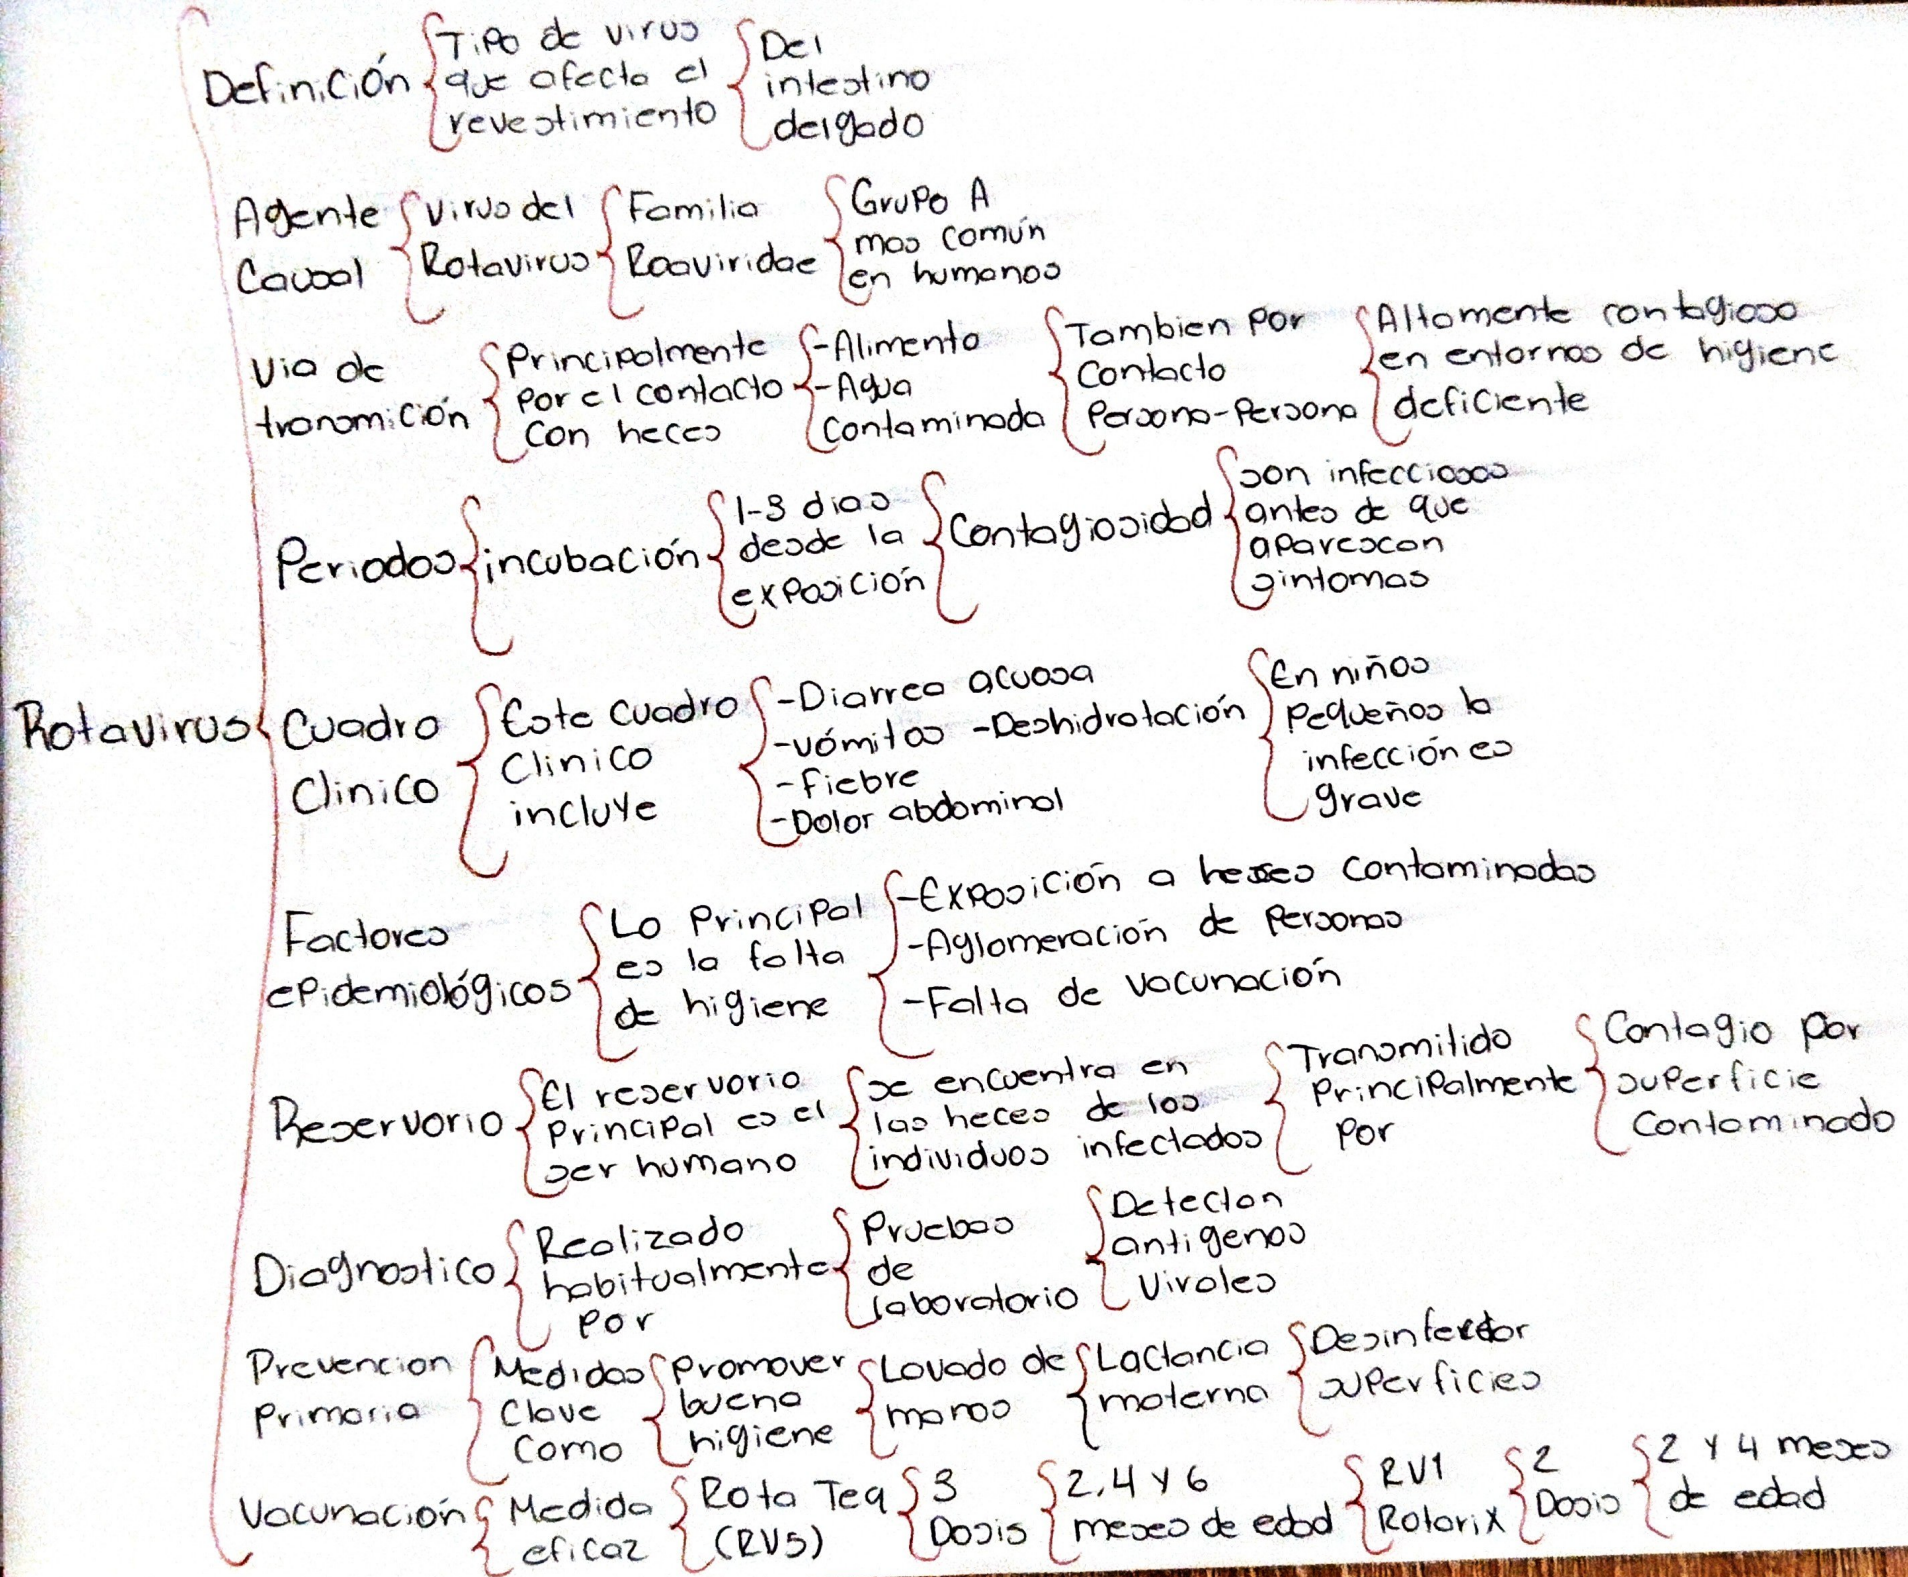 Rotavirus
Definición
Tipo de virus
que afecta el
revestimiento
Del
intestino
delgado
Agente
Causal
Virus del
Rotavirus
Familia
Roaviridae
Grupo A
mas común
en humanos
Via de
transmición
Principalmente
por el contacto
con heces
-Alimento
-Agua
contaminada
Tambien por
Contacto
Persona-Persona
Altamente contagioso
en entornos de higiene
deficiente
Periodos
incubación
1-3 dias
desde la
exposición
Contagiosidad
son infecciosos
antes de que
aparescan
sintomas
Cuadro
Clinico
Este cuadro
Clinico
incluye
-Diarrea acuosa
-vómitos -Deshidratación
-fiebre
-Dolor abdominal
En niños
Pequeños la
infección es
grave
Factores
epidemiológicos
Lo Principal
es la falta
de higiene
-Exposición a heces contaminadas
-Aglomeración de Personas
-Falta de vacunación
Reservorio
El reservorio
Principal es el
ser humano
se encuentra en
las heces de los
individuos infectados
Transmitido
Principalmente
por
Contagio por
superficie
Contaminado
Diagnostico
Realizado
habitualmente
por
Pruebas
de
laboratorio
Detectan
antigenos
Virales
Prevencion
Primaria
Medidas
Clave
Como
Promover
buena
higiene
Lavado de
manos
Lactancia
materna
Desinfectar
superficies
Vacunación
Medida
eficaz
Rota Teq
(RV5)
3
Dosis
2,4 y 6
meses de edad
RV1
Rotarix
2
Dosis
2 y 4 meses
de edad